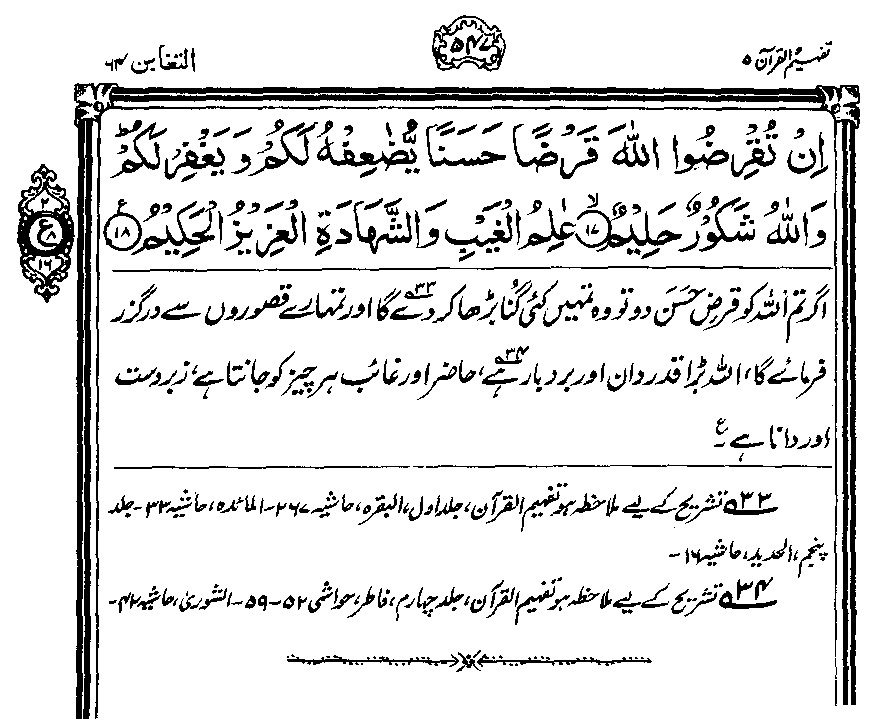 تفہیم القرآن ۵
۵۴۷
التغابن ۶۴
اِنْ تُقْرِضُوا اللّٰهَ قَرْضًا حَسَنًا يُّضٰعِفْهُ لَكُمْ وَيَغْفِرْ لَكُمْ ؕ
وَاللّٰهُ شَكُوْرٌ حَلِيْمٌ ۙ‏﴿۱۷﴾ عٰلِمُ الْغَيْبِ وَالشَّهَادَةِ الْعَزِيْزُ الْحَكِيْمُ ﴿۱۸﴾ ع
۲
ع
۸
۱۶
اگر تم اللہ کو قرضِ حَسَن دو تو وہ تمہیں کئی گُنا بڑھا کر دے گا۳۳ اور تمہارے قصوروں سے درگزر
فرمائے گا، اللہ بڑا قدردان اور بردبار ہے۳۴، حاضر اور غائب ہر چیز کو جانتا ہے، زبردست
اور دانا ہے۔ ع
۳۳؎ تشریح کے لیے ملاحظہ ہو تفہیم القرآن، جلد اول، البقرہ، حاشیہ ۲۶۷۔ المائدہ، حاشیہ ۳۳۔ جلد
پنجم، الحدید، حاشیہ ۱۶۔
۳۴؎ تشریح کے لیے ملاحظہ ہو تفہیم القرآن، جلد چہارم، فاطر، حواشی ۵۲-۵۹۔ الشوریٰ، حاشیہ ۴۲۔